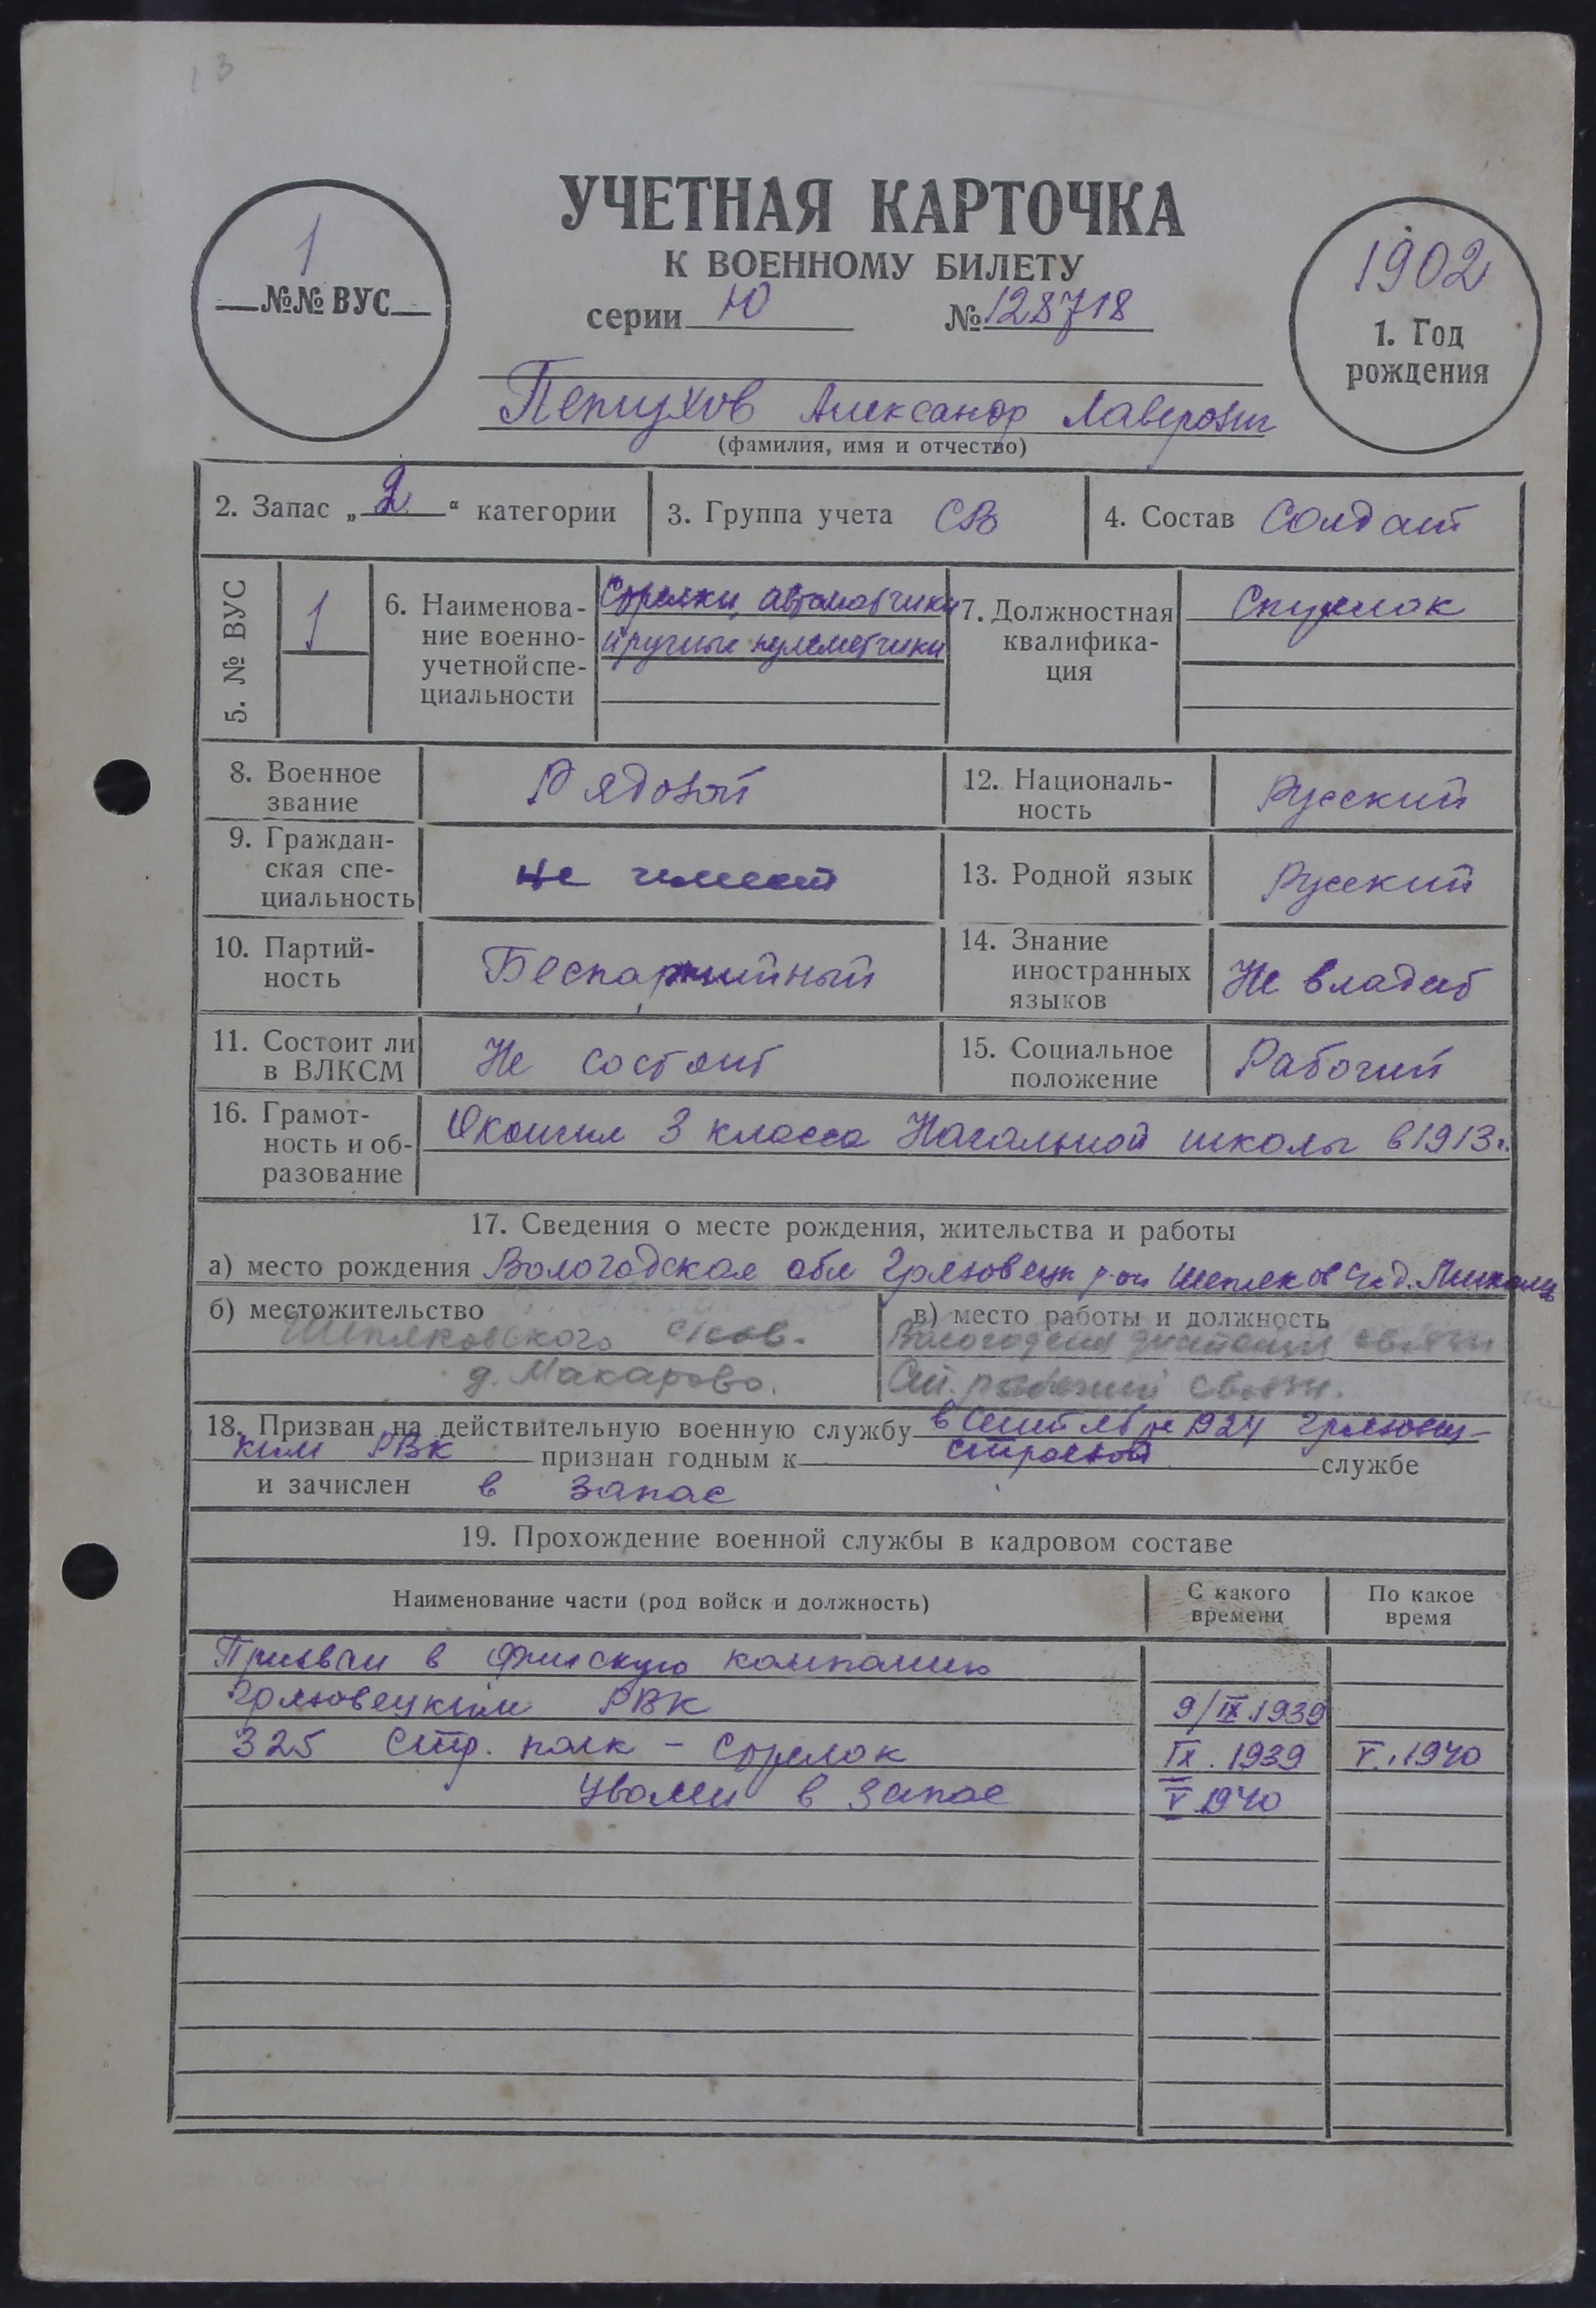 13
УЧЕТНАЯ КАРТОЧКА
К ВОЕННОМУ БИЛЕТУ
серии Ю № 128718
1
№№ ВУС
1902
1. Год
рождения
Петухов Александр Лаверович
(фамилия, имя и отчество)
2. Запас „2“ категории
3. Группа учета СВ
4. Состав Солдат
5. № ВУС
1
6. Наименова-
ние военно-
учетной спе-
циальности
Стрелки, автоматчики
и ручные пулеметчики
7. Должностная
квалифика-
ция
Стрелок
8. Военное
звание
Рядовой
12. Националь-
ность
Русский
9. Граждан-
ская спе-
циальность
не имеет
13. Родной язык
Русский
10. Партий-
ность
Беспартийный
14. Знание
иностранных
языков
Не владеет
11. Состоит ли
в ВЛКСМ
Не состоит
15. Социальное
положение
Рабочий
16. Грамот-
ность и об-
разование
Окончил 3 класса Начальной школы в 1913г.
17. Сведения о месте рождения, жительства и работы
а) место рождения Вологодская обл Грязовецк р-он Шепяков с/с д.
б) местожительство
Шепяковского с/сов.
д. Макарово.
в) место работы и должность
Вологодская дистанция связи
Ст. рабочий связи.
18. Призван на действительную военную службу в Сентябре 1924 Грязовец-
ким РВК признан годным к строевой службе
и зачислен в запас
19. Прохождение военной службы в кадровом составе
Наименование части (род войск и должность)
С какого
времени
По какое
время
Призван в Финскую компанию
Грязовецким РВК 9/IX 1939
325 Стр. полк - Стрелок IX. 1939 V. 1940
Уволен в запас V 1940